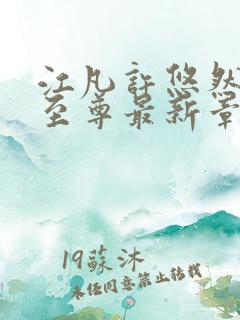 江凡许悠然
至尊最新章
19蘇沐
未经同意禁止转载